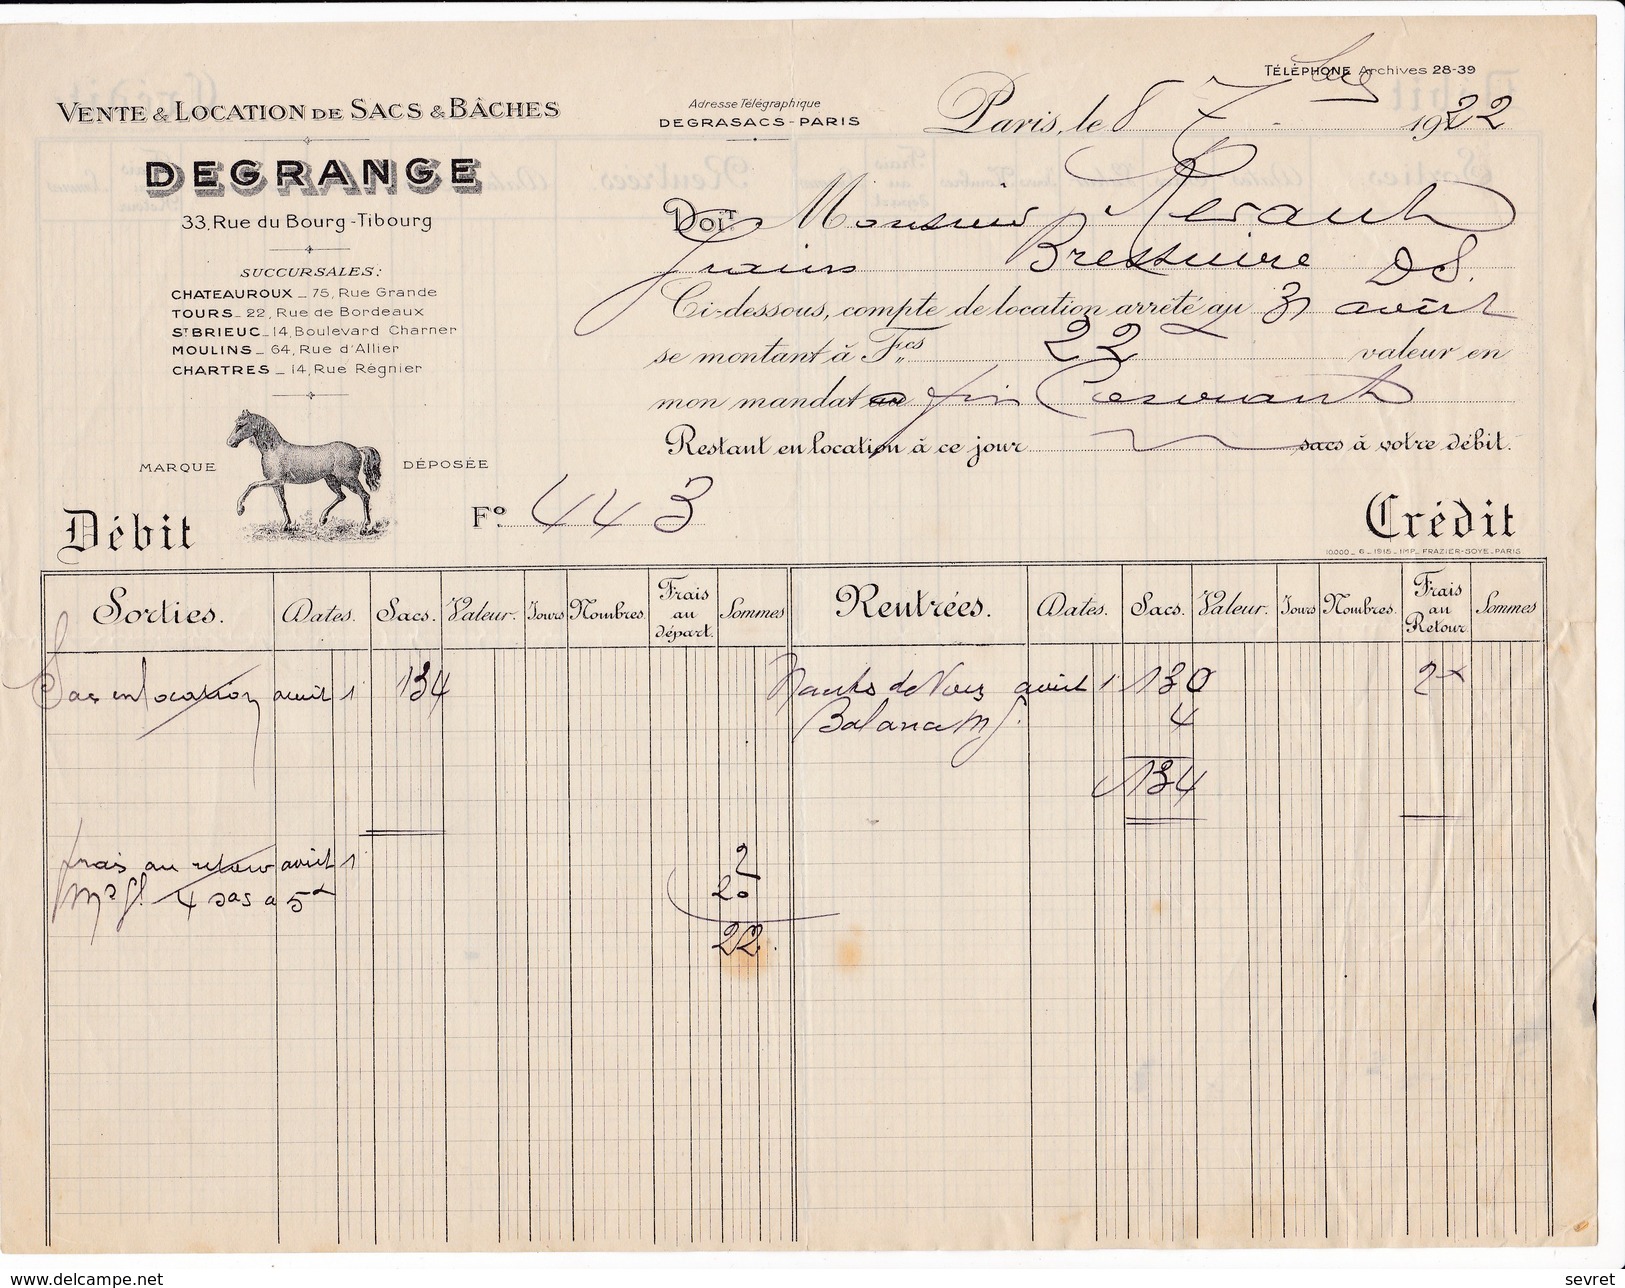 TÉLÉPHONE Archives 28-39
VENTE & LOCATION DE SACS & BÂCHES
Adresse Télégraphique
DEGRASACS-PARIS
Paris, le 8 7 1922
DEGRANGE
33, Rue du Bourg-Tibourg
SUCCURSALES:
CHATEAUROUX _ 75, Rue Grande
TOURS _ 22, Rue de Bordeaux
ST BRIEUC _ 14, Boulevard Charner
MOULINS _ 64, Rue d'Allier
CHARTRES _ 14, Rue Régnier
MARQUE DÉPOSÉE
Doit Monsieur
Grains Bressuire DS.
Ci-dessous, compte de location arrêté au 31 avril
se montant à Fcs 22 valeur en
mon mandat au fin Courant
Restant en location à ce jour sacs à votre débit.
Débit
Fo. 443
Crédit
10.000 _ 6 _ 1915 _ IMP. FRAZIER-SOYE. PARIS
Sorties. Dates. Sacs. Valeur. Jours Nombres. Frais au départ. Sommes Rentrées. Dates. Sacs. Valeur. Jours Nombres. Frais au Retour. Sommes
Sacs en location avril 1 134 avril 1 130 2
Balance 4
134
frais au retour avril 1 2
4 sacs a 5 20
22
www.delcampe.net
sevret